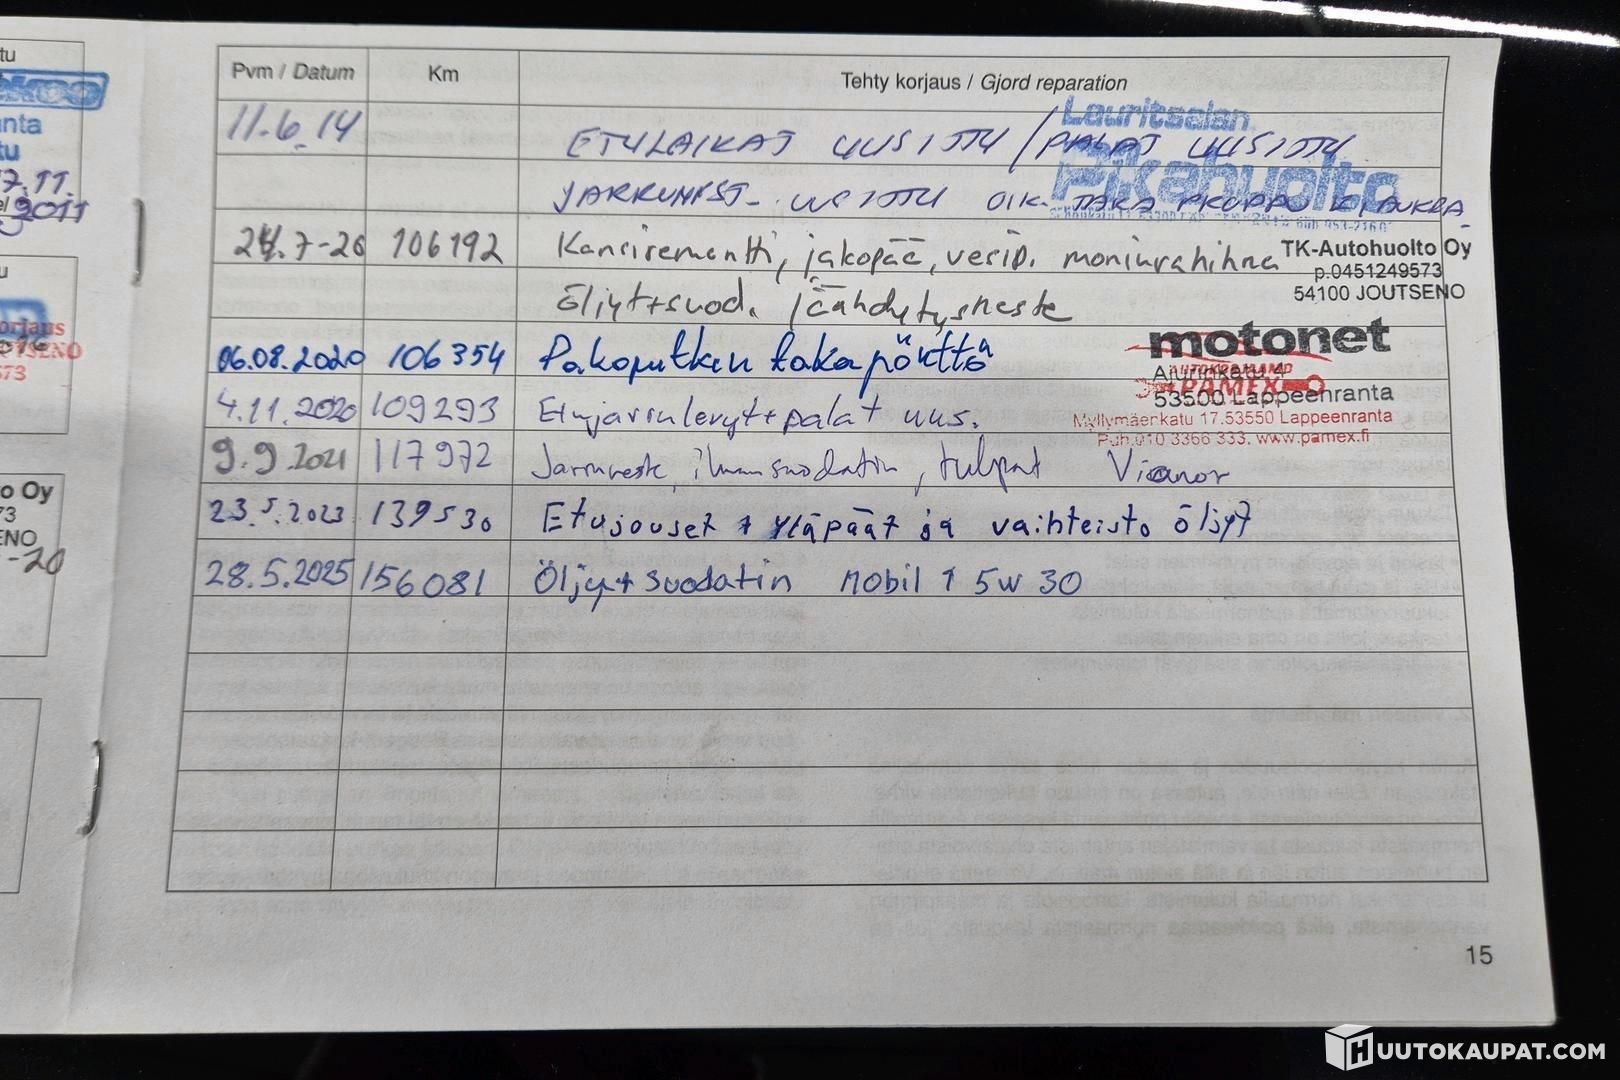 Pvm / Datum
Km
Tehty korjaus / Gjord reparation
11.6.14 ETULAIKAT UUSITTU / PALAT UUSITTU
Lauritsalan
Pikahuolto
JARRUNEST. UUSITTU OIK. TAKA
24.7-20 106192 Kansiremontti, jakopää, vesip. moniurahihna
öljyt+suod. jäähdytysneste
TK-Autohuolto Oy
p.0451249573
54100 JOUTSENO
06.08.2020 106354 Pakoputken takapönttö
motonet
53500 Lappeenranta
AUTOKORJAAMO
PAMEX
Myllymäenkatu 17.53550 Lappeenranta
Puh.010 3366 333. www.pamex.fi
4.11.2020 109293 Etujarrulevyt+palat uus.
9.9.2021 117972 Jarruneste, ilmansuodatin, tulpat Vianor
23.5.2023 139530 Etujouset + yläpäät ja vaihteisto öljyt
28.5.2025 156081 Öljy+suodatin Mobil 1 5W 30
15
nta
tu
17.11.
2011
tu
orjaus
TSENO
573
o Oy
73
ENO
-20
HUUTOKAUPAT.COM